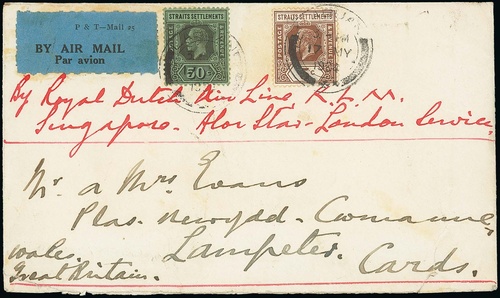 P & T—Mail 25
BY AIR MAIL
Par avion
STRAITS SETTLEMENTS
POSTAGE & REVENUE
50c
STRAITS SETTLEMENTS
By Royal Dutch Air Line K.L.M.
Singapore - Alor Star - London Service
Mr & Mrs Evans
Plas-newydd - Cwmanne
Lampeter.
Wales. Cards.
Great Britain.